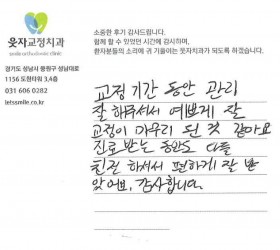 웃자교정치과
smile orthodontic clinic
경기도 성남시 중원구 성남대로
1156 도원타워 3,4층
031 606 0282
letssmile.co.kr
소중한 후기 감사드립니다.
함께 할 수 있었던 시간에 감사하며,
환자분들의 소리에 귀 기울이는 웃자치과가 되도록 하겠습니다.
교정 기간 동안 관리
잘 해주셔서 예쁘게 잘
교정이 마무리 된 것 같아요
진료받는 동안도 다들
친절하셔서 편하게 잘 받
았어요. 감사합니다.